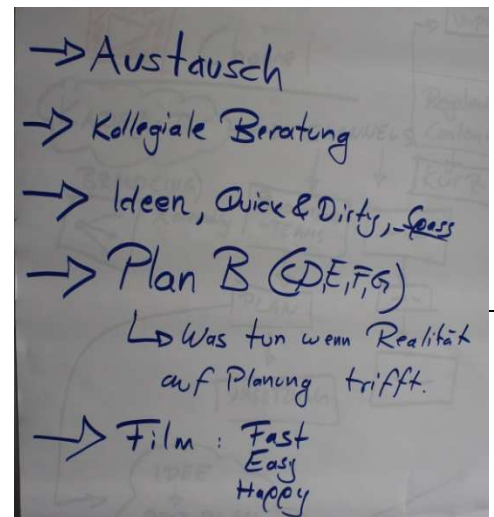 → Austausch
→ Kollegiale Beratung
→ Ideen, Quick & Dirty, Spass
→ Plan B (C,D,E,F,G)
↳ Was tun wenn Realität
auf Planung trifft.
→ Film : Fast
Easy
Happy